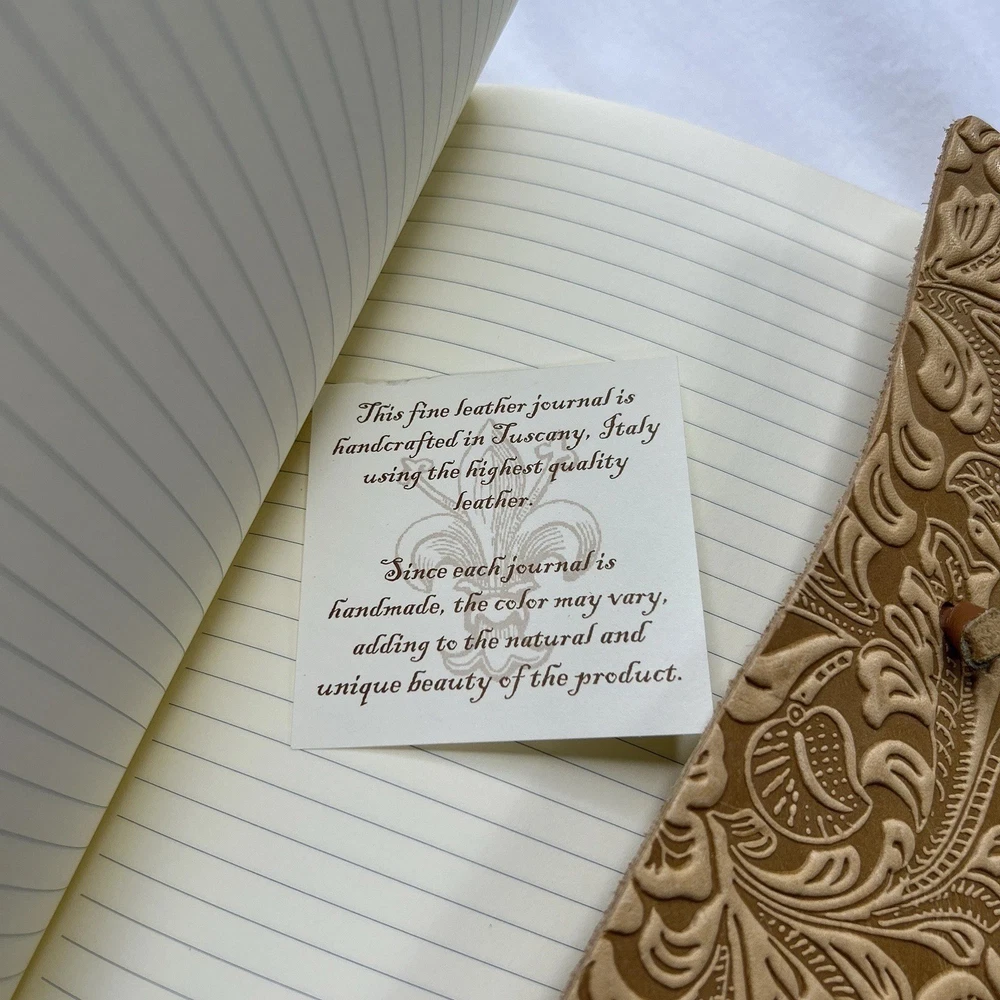 This fine leather journal is
handcrafted in Tuscany, Italy
using the highest quality
leather.
Since each journal is
handmade, the color may vary,
adding to the natural and
unique beauty of the product.